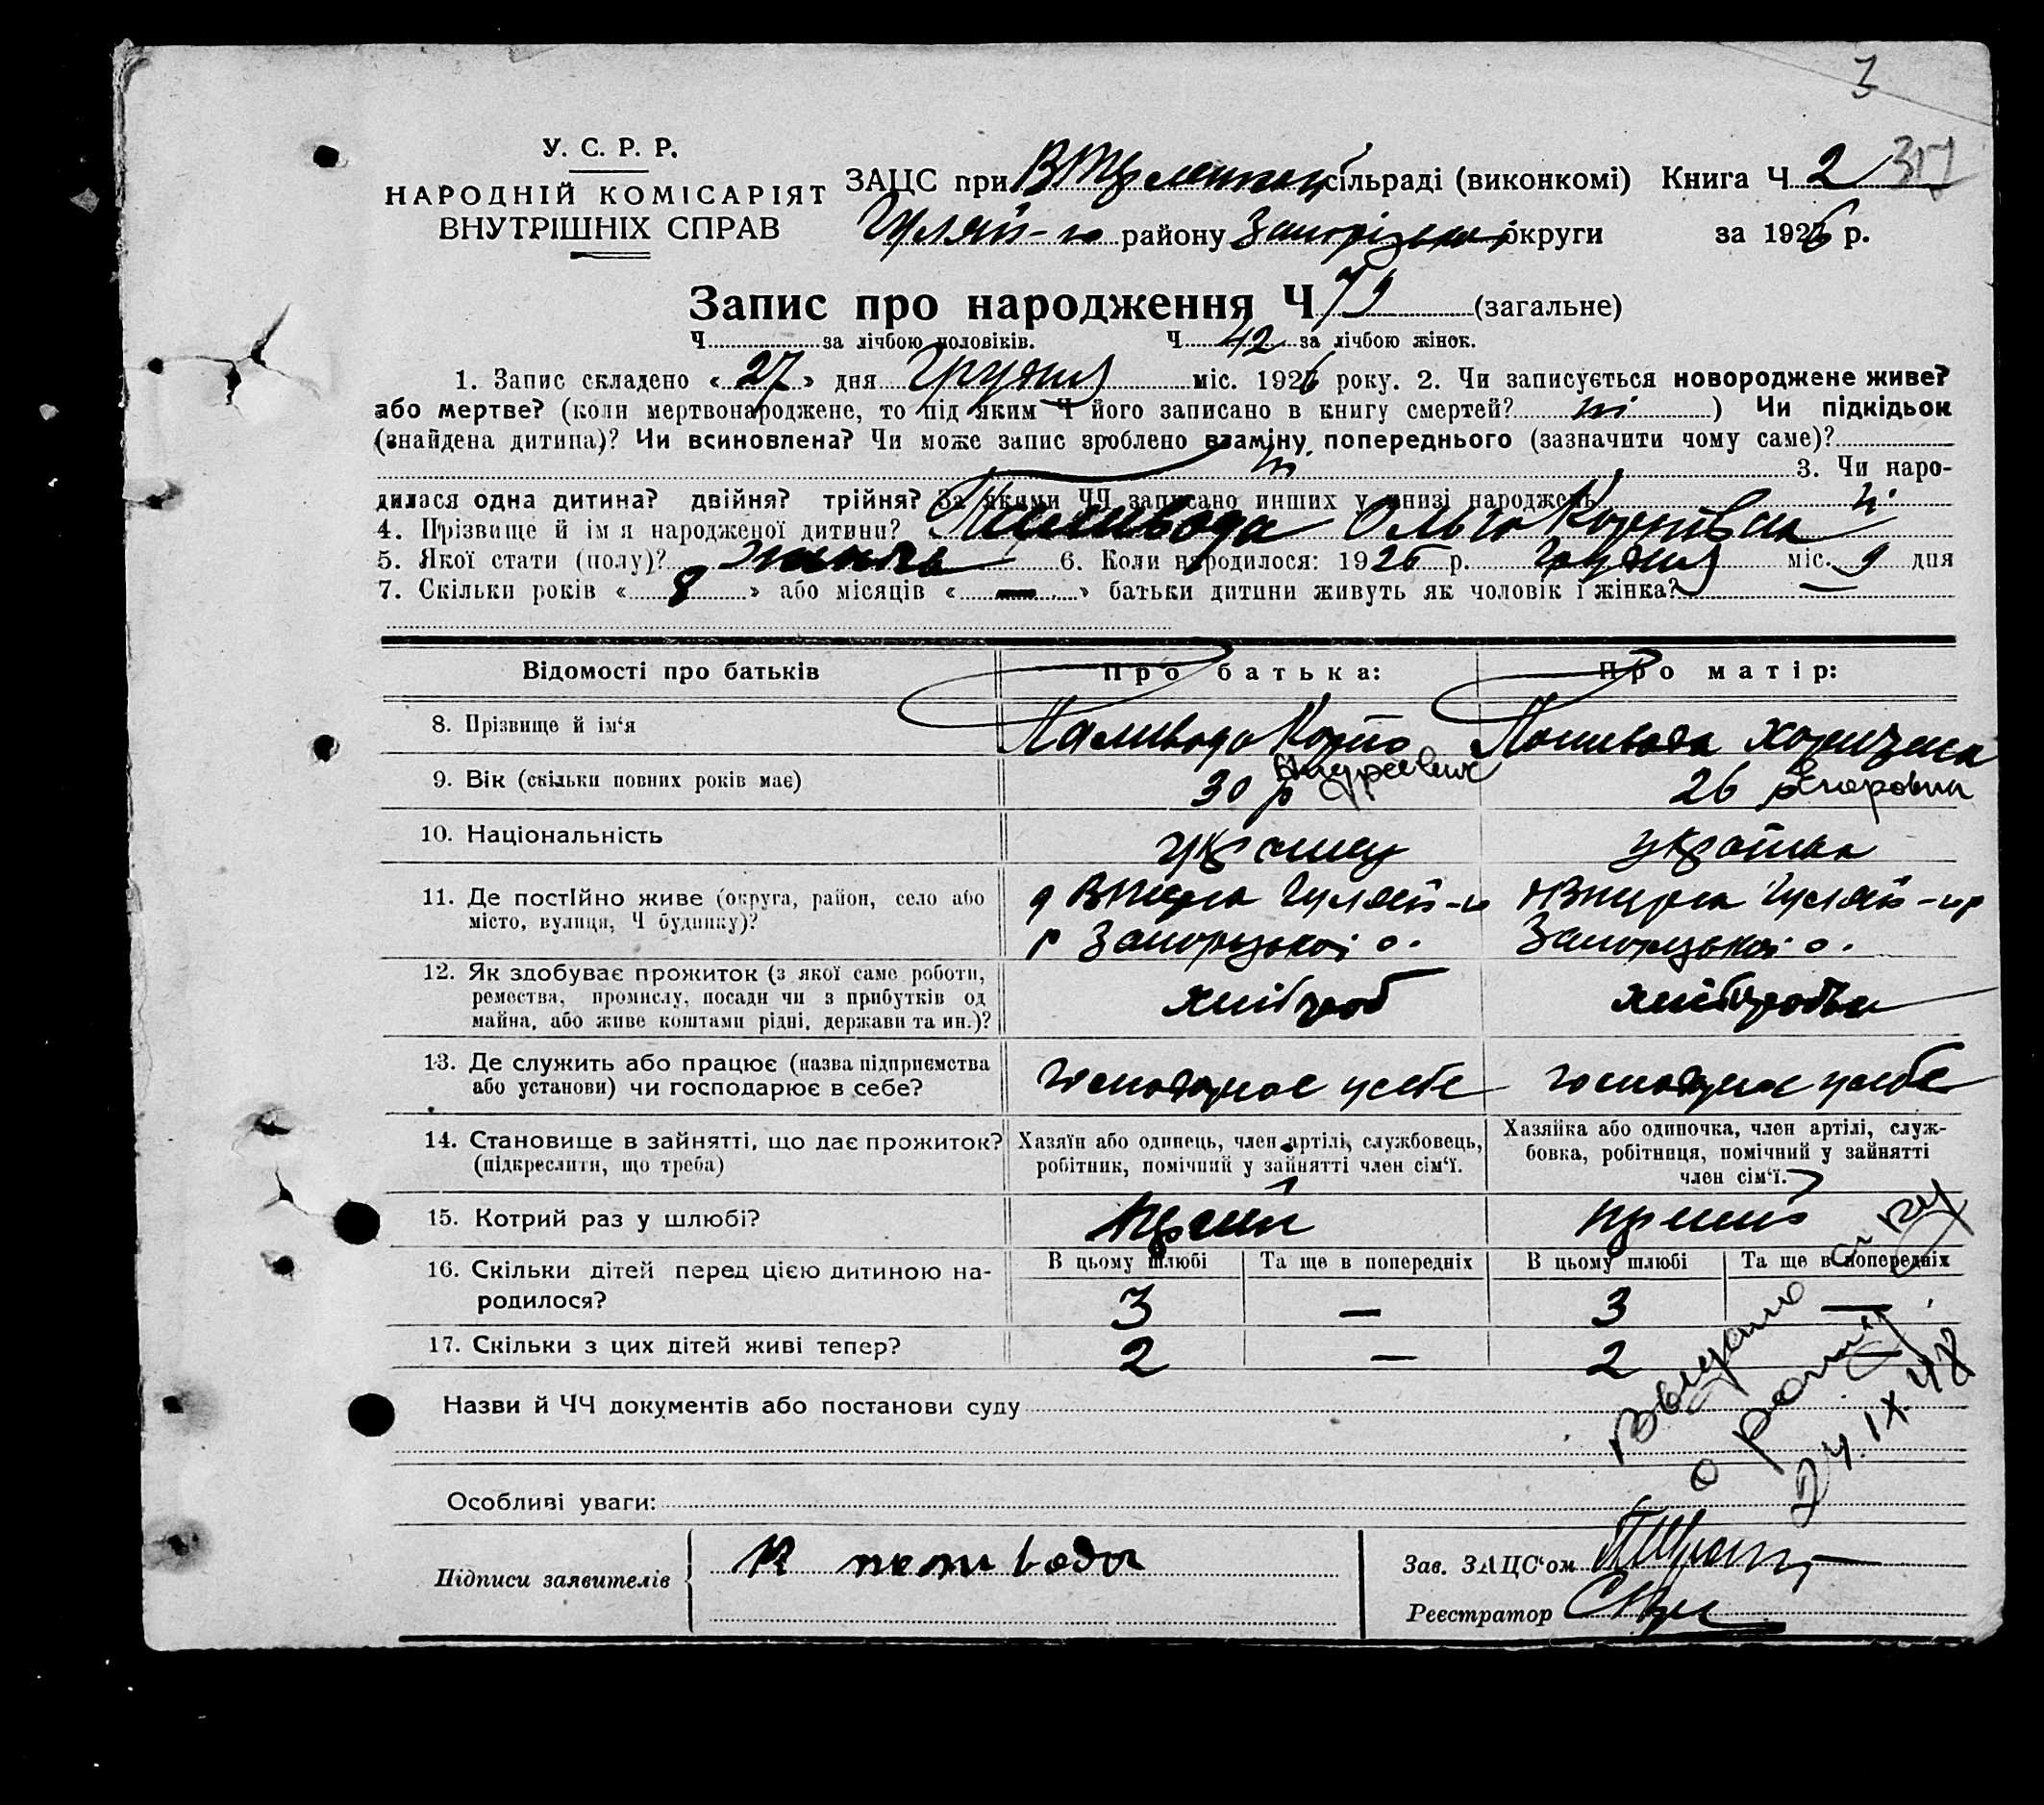 3
У. С. Р. Р.
НАРОДНІЙ КОМІСАРІЯТ
ВНУТРІШНІХ СПРАВ
ЗАЦС при сільраді (виконкомі) Книга Ч 2 317
Гуляй-по району Запорізької округи за 1926 р.
Запис про народження Ч 79 (загальне)
Ч за лічбою чоловіків. Ч 42 за лічбою жінок.
1. Запис складено « 27 » дня Грудня міс. 1926 року. 2. Чи записується новороджене живе?
або мертве? (коли мертвонароджене, то під яким Ч його записано в книгу смертей? ні ) Чи підкідьок
(знайдена дитина)? Чи всиновлена? Чи може запис зроблено взаміну попереднього (зазначити чому саме)?
ні 3. Чи наро-
дилася одна дитина? двійня? трійня? За якими ЧЧ записано инших у книзі народжень ні
4. Прізвище й ім я народженої дитини? Паливода Ольга Карпівна
5. Якої стати (полу)? 6. Коли народилося: 1926 р. грудня міс. 9 дня
7. Скільки років « 8 » або місяців « — » батьки дитини живуть як чоловік і жінка? —
Відомості про батьків Про батька: Про матір:
8. Прізвище й ім'я Паливода Карпо Паливода
Андреевич Егоровна
9. Вік (скільки повних років має) 30 р 26 р
10. Національність українец українка
11. Де постійно живе (округа, район, село або
місто, вулиця, Ч будинку)? Гуляй-п Гуляй-п р
р Запорізької о. Запорізької о.
12. Як здобуває прожиток (з якої саме роботи,
ремества, промислу, посади чи з прибутків од
майна, або живе коштами рідні, держави та ин.)? хлібороб хліборобка
13. Де служить або працює (назва підприємства
або установи) чи господарює в себе? господарює усебе господарює усебе
14. Становище в зайнятті, що дає прожиток?
(підкреслити, що треба)
Хазяїн або одинець, член артілі, службовець,
робітник, помічний у зайнятті член сім'ї.
Хазяйка або одиночка, член артілі, служ-
бовка, робітниця, помічний у зайнятті
член сім'ї.
15. Котрий раз у шлюбі? перший перший
16. Скільки дітей перед цією дитиною на-
родилося?
В цьому шлюбі Та ще в попередніх В цьому шлюбі Та ще в попередніх
3 — 3 —
17. Скільки з цих дітей живі тепер? 2 — 2 —
Назви й ЧЧ документів або постанови суду
24.IX.48
Особливі уваги:
Підписи заявителів К паливода
Зав. ЗАЦС'ом
Реєстратор